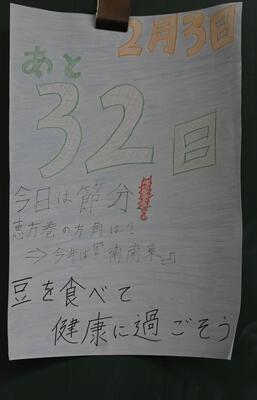 2月3日
あと
32日
今日は節分!
恵方巻の方角は?
⇒今年は『南南東』
豆を食べて
健康に過ごそう